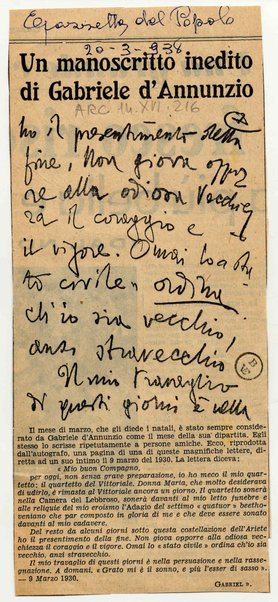 Gazzetta del Popolo
20-3-938
Un manoscritto inedito
di Gabriele d'Annunzio
ARC 14.XVI.216
ho il presentimento della
fine. Non giova oppor
re alla odiosa vecchiez
za il coraggio e
il vigore. Omai lo « sta
to civile » ordina
ch'io sia vecchio,
anzi stravecchio
Il mio travaglio
di questi giorni è nella
Il mese di marzo, che gli diede i natali, è stato sempre considerato
da Gabriele d'Annunzio come il mese della sua dipartita. Egli
stesso lo scrisse ripetutamente a persone amiche. Ecco, riprodotta
dall'autografo, una pagina di una di queste magnifiche lettere, diretta
ad un suo intimo il 9 marzo del 1930. La lettera diceva:
« Mio buon Compagno,
per oggi, non senza grave preparazione, io ho meco il mio quartetto;
il quartetto del Vittoriale. Donna Maria, che molto desiderava
di udirlo, è rimasta al Vittoriale ancora un giorno. Il quartetto sonerà
nella Camera del Lebbroso, sonerà davanti al mio letto funebre e
alle reliquie del mio eroismo l'Adagio del settimo « quatuor » beethoveniano
che par composto in gloria di me e che deve essere sonato
davanti al mio cadavere.
Del resto da alcuni giorni sotto questa costellazione dell'Ariete
ho il presentimento della fine. Non giova opporre alla odiosa vecchiezza
il coraggio e il vigore. Omai lo « stato civile » ordina ch'io sia
vecchio, anzi stravecchio.
Il mio travaglio di questi giorni è nella persuazione e nella rassegnazione.
A domani. « Grato mi è il sonno, e più l'esser di sasso ».
— 9 Marzo 1930. GABRIEL ».